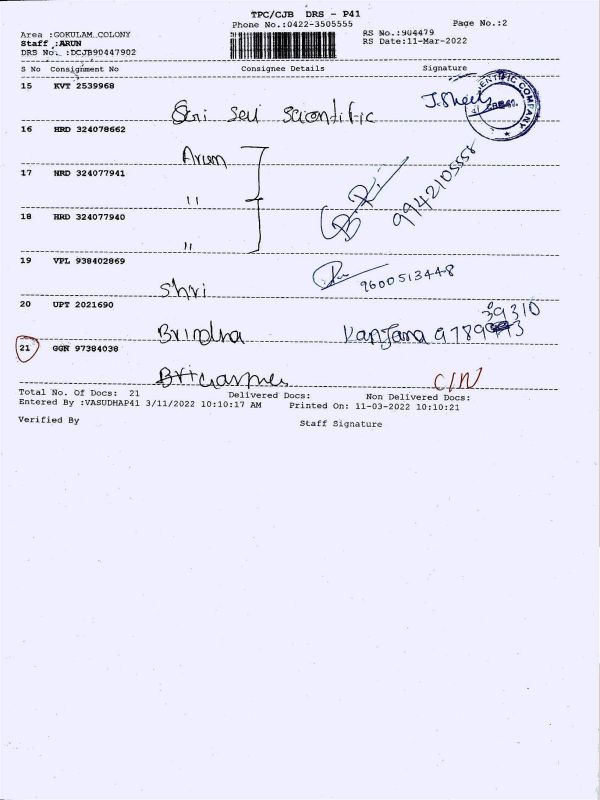 TPC/CJB DRS - P41
Phone No.:0422-3505555
Page No.:2
Area :GOKULAM_COLONY
RS No.:904479
Staff :ARUN
RS Date:11-Mar-2022
DRS No. :DCJB90447902
S No Consignment No Consignee Details Signature
15 KVT 2539968
Sri Sei Scientific
16 HRD 324078662
Arun
17 NRD 324077941
"
9942105558
18 HRD 324077940
"
19 VPL 938402869
Shri
9600513448
20 UPT 2021690
Brindha
21 GGN 97384038
C/N
Total No. Of Docs: 21 Delivered Docs: Non Delivered Docs:
Entered By :VASUDHAP41 3/11/2022 10:10:17 AM Printed On: 11-03-2022 10:10:21
Verified By Staff Signature